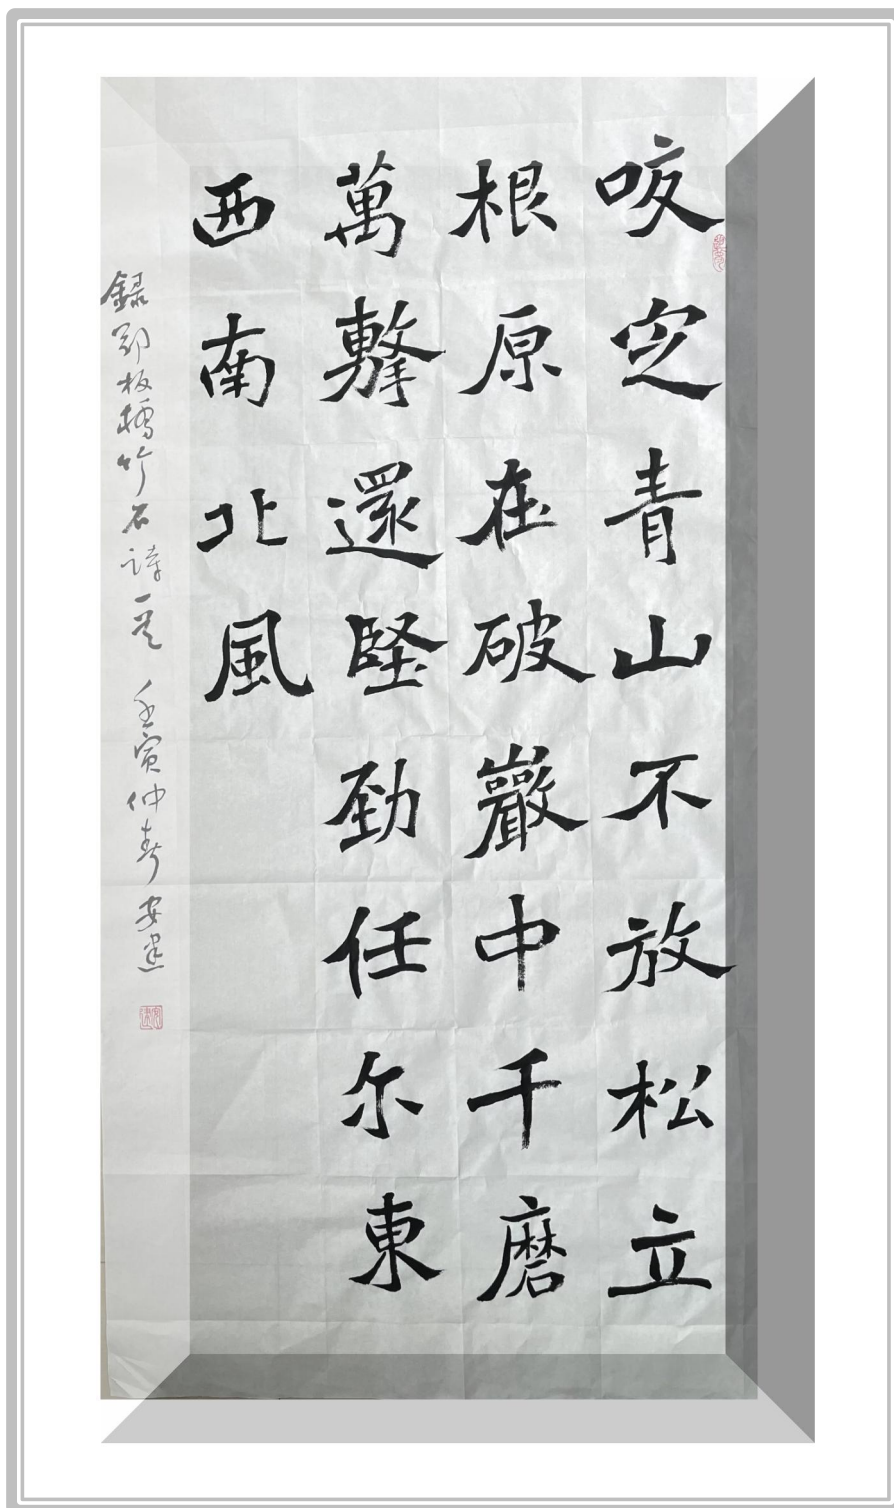 咬定青山不放松立
根原在破巖中千磨
萬擊還堅勁任尔東
西南北風
録鄭板橋竹石詩一首 壬寅仲春 安建